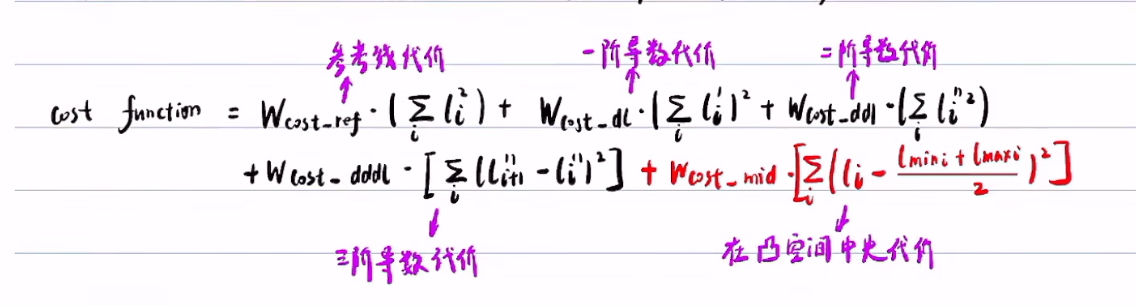 参考线代价 一阶导数代价 二阶导数代价
cost function = W_{cost_ref} · (∑_i l_i^2) + W_{cost_dl} · (∑_i l_i')^2 + W_{cost_ddl} · (∑_i l_i''^2)
+ W_{cost_dddl} · [∑_i (l_{i+1}'' - l_i'')^2] + W_{cost_mid} · [∑_i (l_i - \frac{l_{min i} + l_{max i}}{2})^2]
三阶导数代价 在凸空间中央代价